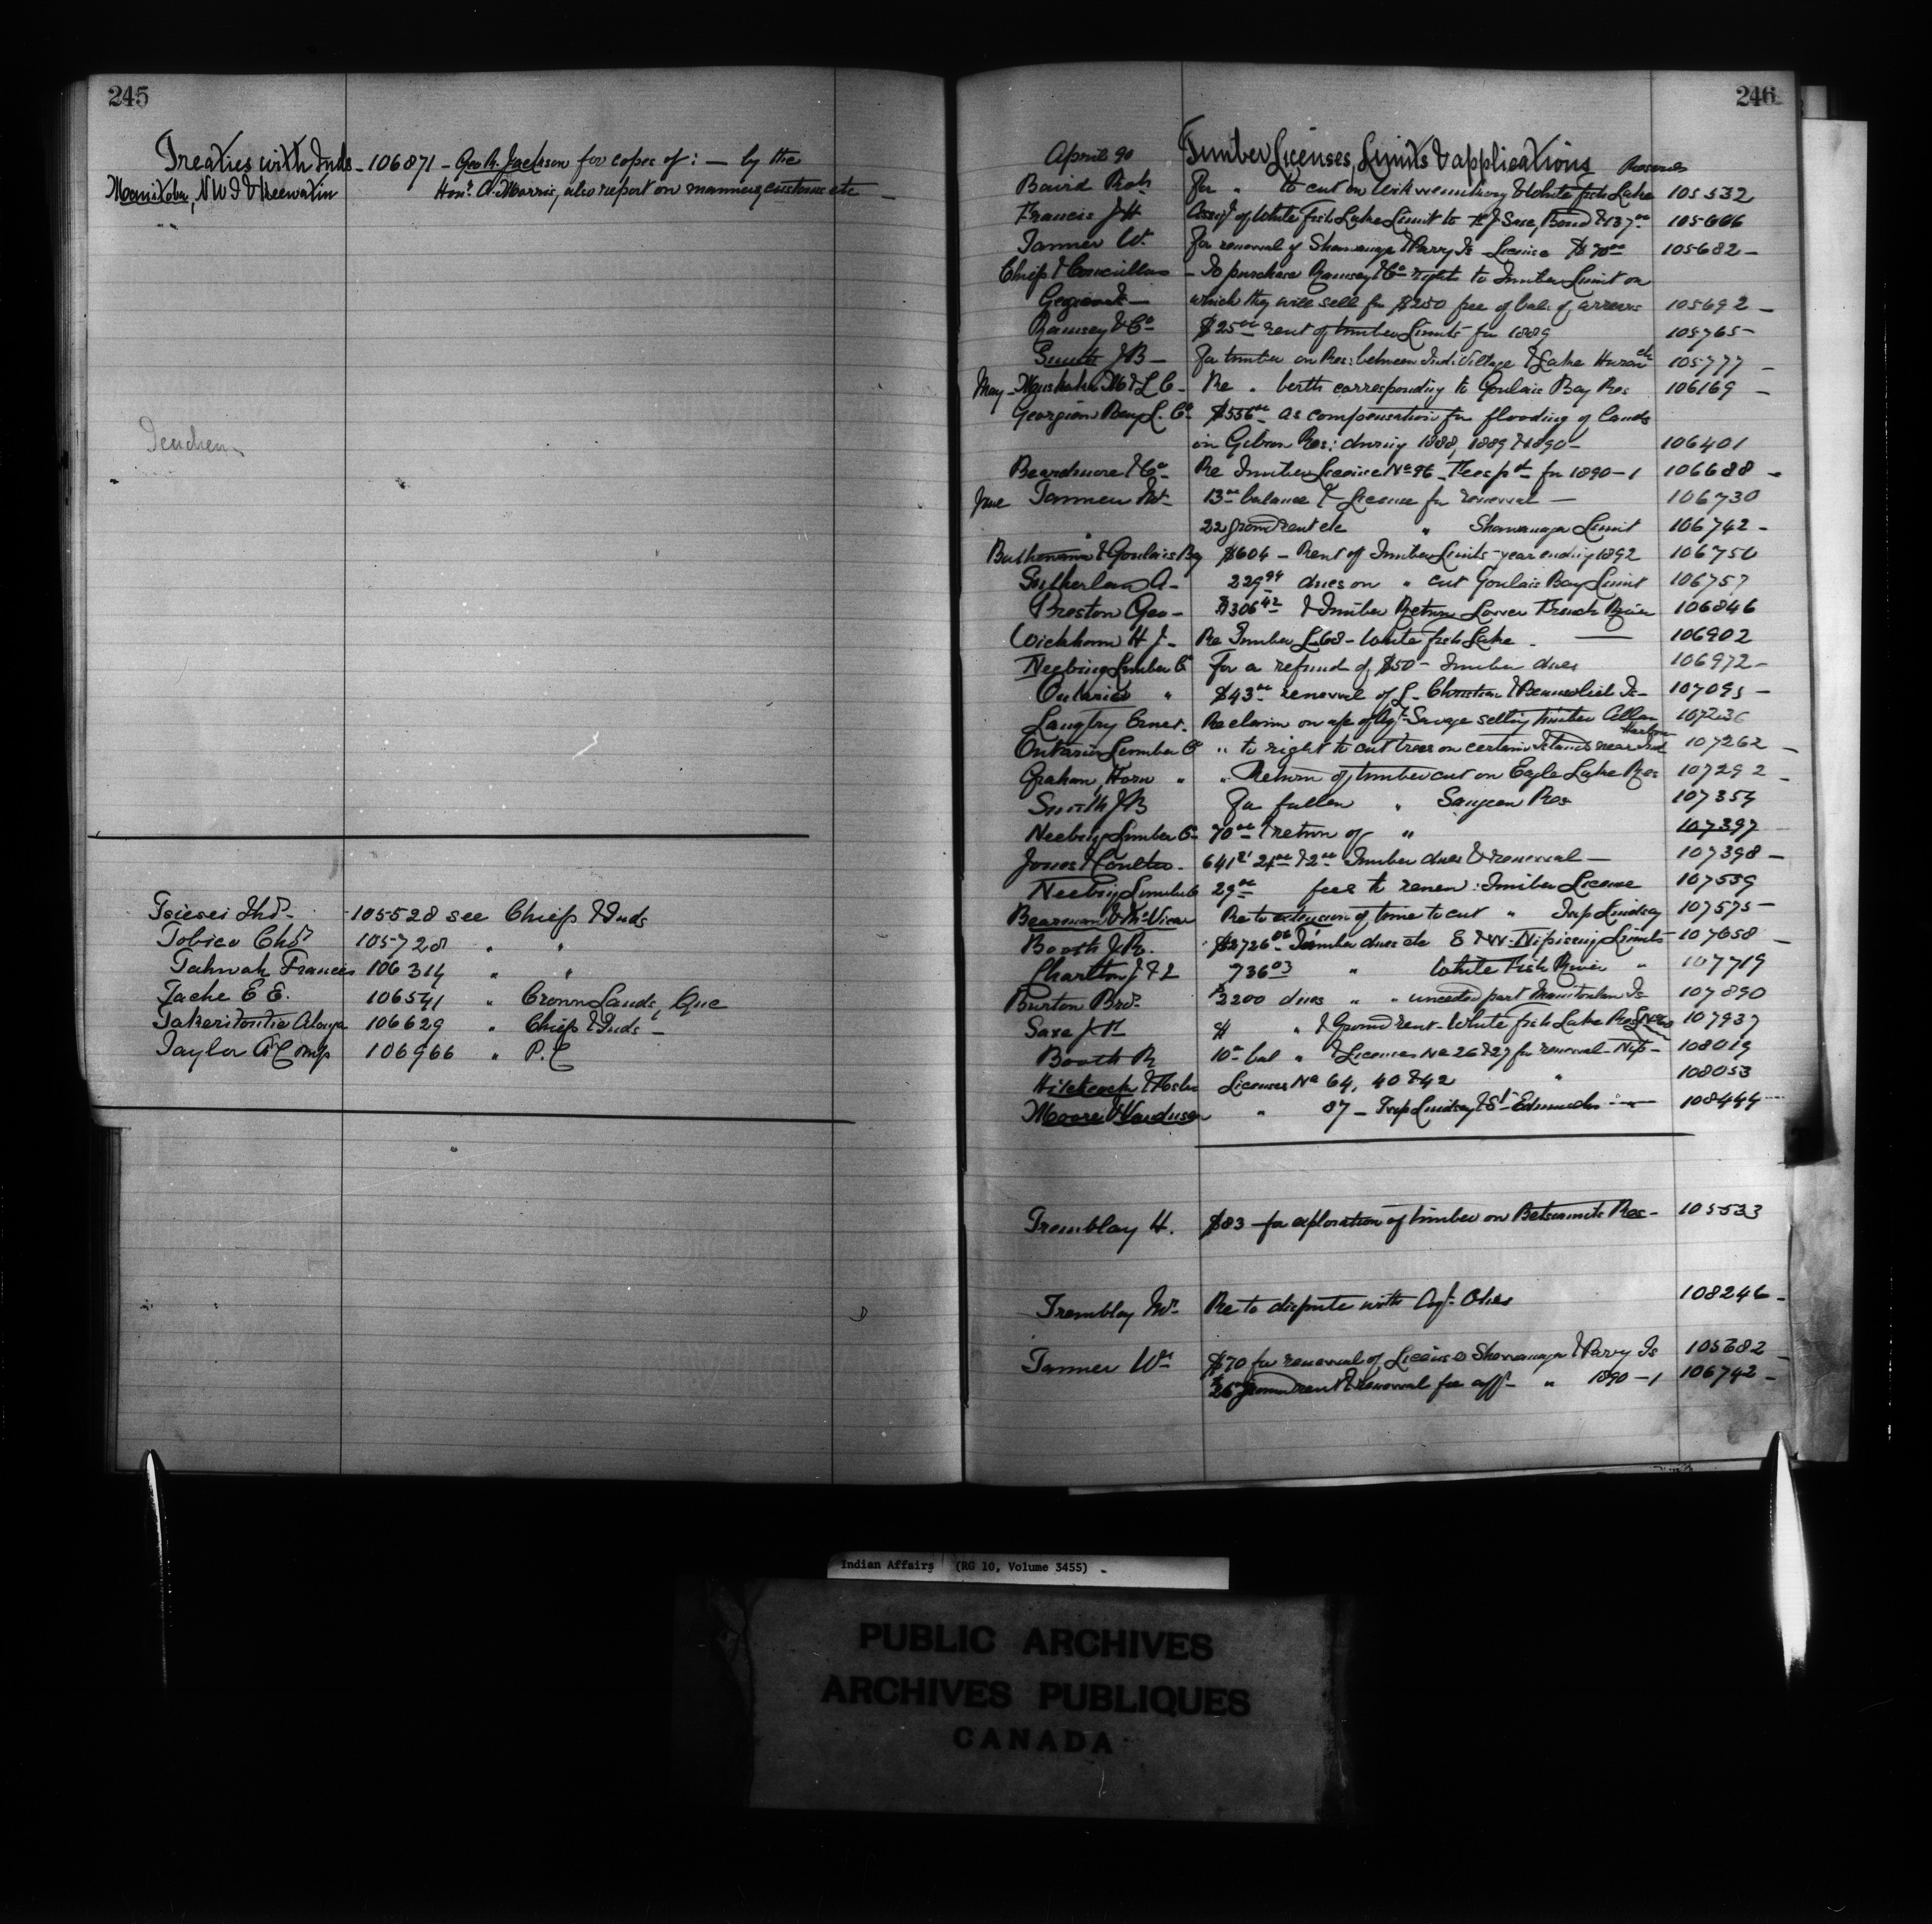 245
Treaties with Inds - 106871 - Geo. R. Jackson for copes of: - by the
Manitoba, NWT & Keewatin Honr. A. Morris, also report on manners, customs etc -
Tsiesei Thos. 105528 see Chiefs & Inds
Tobico Chs. 105728 " "
Tahwah Francis 106314 " "
Tache E E. 106541 " Crown Lands, Que
Takeritontie Alonza 106629 " Chiefs & Inds -
Taylor A Comp 106966 " P.C
246
April 90 Timber Licenses, Limits & applications Reserves
Baird Robt For " to cut on & White fish Lake 105532
Francis J H Assigt of White Fish Lake Limit to Saxe, Bond & 137.00 105666
Tanner W. For renewal of Shawanaga & Parry Is License $70.00 105682 -
Chiefs & Councillors - To purchase Ramsey & Co rights to Timber Limit on
which they will sell for $250 free of bal. of arrears 105692 -
Ramsey & Co $25.00 rent of timber Limits for 1889 105765 -
Smith J B - For timber on Res: between Ind. Village & Lake Huron etc 105777 -
May - Muskoka M & L C - Re " berth corresponding to Goulais Bay Res 106169 -
Georgian Bay L. Co. $556.00 as compensation for flooding of lands
in Gibson Res: during 1888, 1889 & 1890 - 106401
Beardmore & Co Re Timber License No 96 - Fees pd for 1890-1 106688 -
June Tanner Wm. 13.00 balance & License for renewal - 106730
22 ground rent etc " Shawanaga Limit 106742 -
Batchewana & Goulais Bay $604 - Rent of Timber Limits - year ending 1892 106750
Sutherland A - 229.94 dues on " cut Goulais Bay Limit 106757
Preston Geo - $306.42 & Timber Return Lower French River 106846
Wickham H J - Re Timber L 68 - White fish Lake - 106902
Neebing Lumber Co For a refund of $50 - Timber dues 106972 -
Ontario " $43.00 renewal of L - Christian & Beausoliel Is - 107095 -
Langtry Ernest. Re claim on a/c of Agt. Savage selling timber 107236
Ontario Lumber Co " to right to cut trees on certain Islands near Ind Harbor 107262 -
Graham, Horn " " Return of timber cut on Eagle Lake Res 107292 -
Smith J B For fallen " Saugeen Res 107354
Neebing Lumber Co 70.00 & return of " 107397
Jones & Coulter - 641.21 24.00 & 2.00 Timber dues & renewal - 107398 -
Neebing Lumber Co 29.00 fees to renew: Timber License 107539
Bearman & McVicar Re to extension of time to cut " Twp Lindsay 107575 -
Booth J R. $2726.06 Timber dues etc E & W - Nipissing Limits 107658 -
Charlton J & T 736.03 " White Fish River " 107719
Burton Bros. $2200 dues " " unceded part Manitoulin Is 107890
Saxe J H $ " & Ground rent - White fish Lake Res 107937
Booth R 10.00 bal " & Licenses No 26 & 27 for renewal - Nip - 108019
Hitchcock & Foster Licenses No 64, 40 & 42 " 108053
Moore & Vandusen " 87 - Twp Lindsay & St. Edmunds - 108444
Tremblay H. $83 - for exploration of timber on Betsiamits Res - 105533
Tremblay Mr. Re to dispute with Agt. Otis 108246 -
Tanner Wm $70 for renewal of License Shawanaga & Parry Is 105682 -
ground rent & renewal fee " 1890-1 106742 -
Indian Affairs (RG 10, Volume 3455)
PUBLIC ARCHIVES
ARCHIVES PUBLIQUES
CANADA